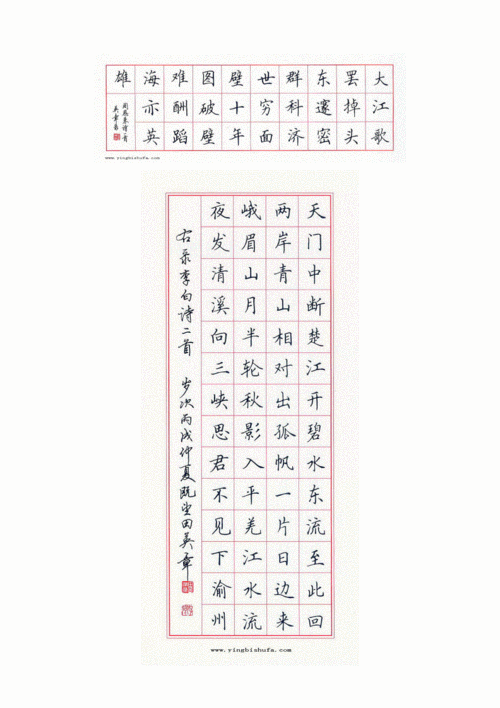 大江歌
罢掉头
东邃密
群科济
世穷面
壁十年
图破壁
难酬蹈
海亦英
雄
周恩来
英章书
www.yingbishufa.com
天门中断楚江开碧水东流至此回
两岸青山相对出孤帆一片日边来
峨眉山月半轮秋影入平羌江水流
夜发清溪向三峡思君不见下渝州
右录李白诗二首 岁次丙戌仲夏 田英章
www.yingbishufa.com